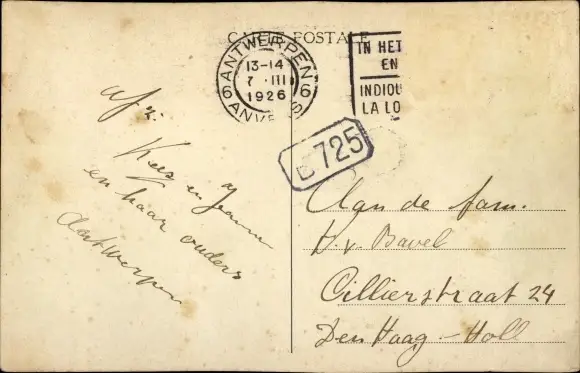 CARTE POSTALE
ANTWERPEN
13-14
7 III
1926
6 6
ANVERS
IN HET
EN
INDIQU
LA LO
725
afz.
Kees en Jeanne
en haar ouders
Antwerpen
Aan de fam.
H. v. Bavel
Cillierstraat 24
Den Haag - Holl